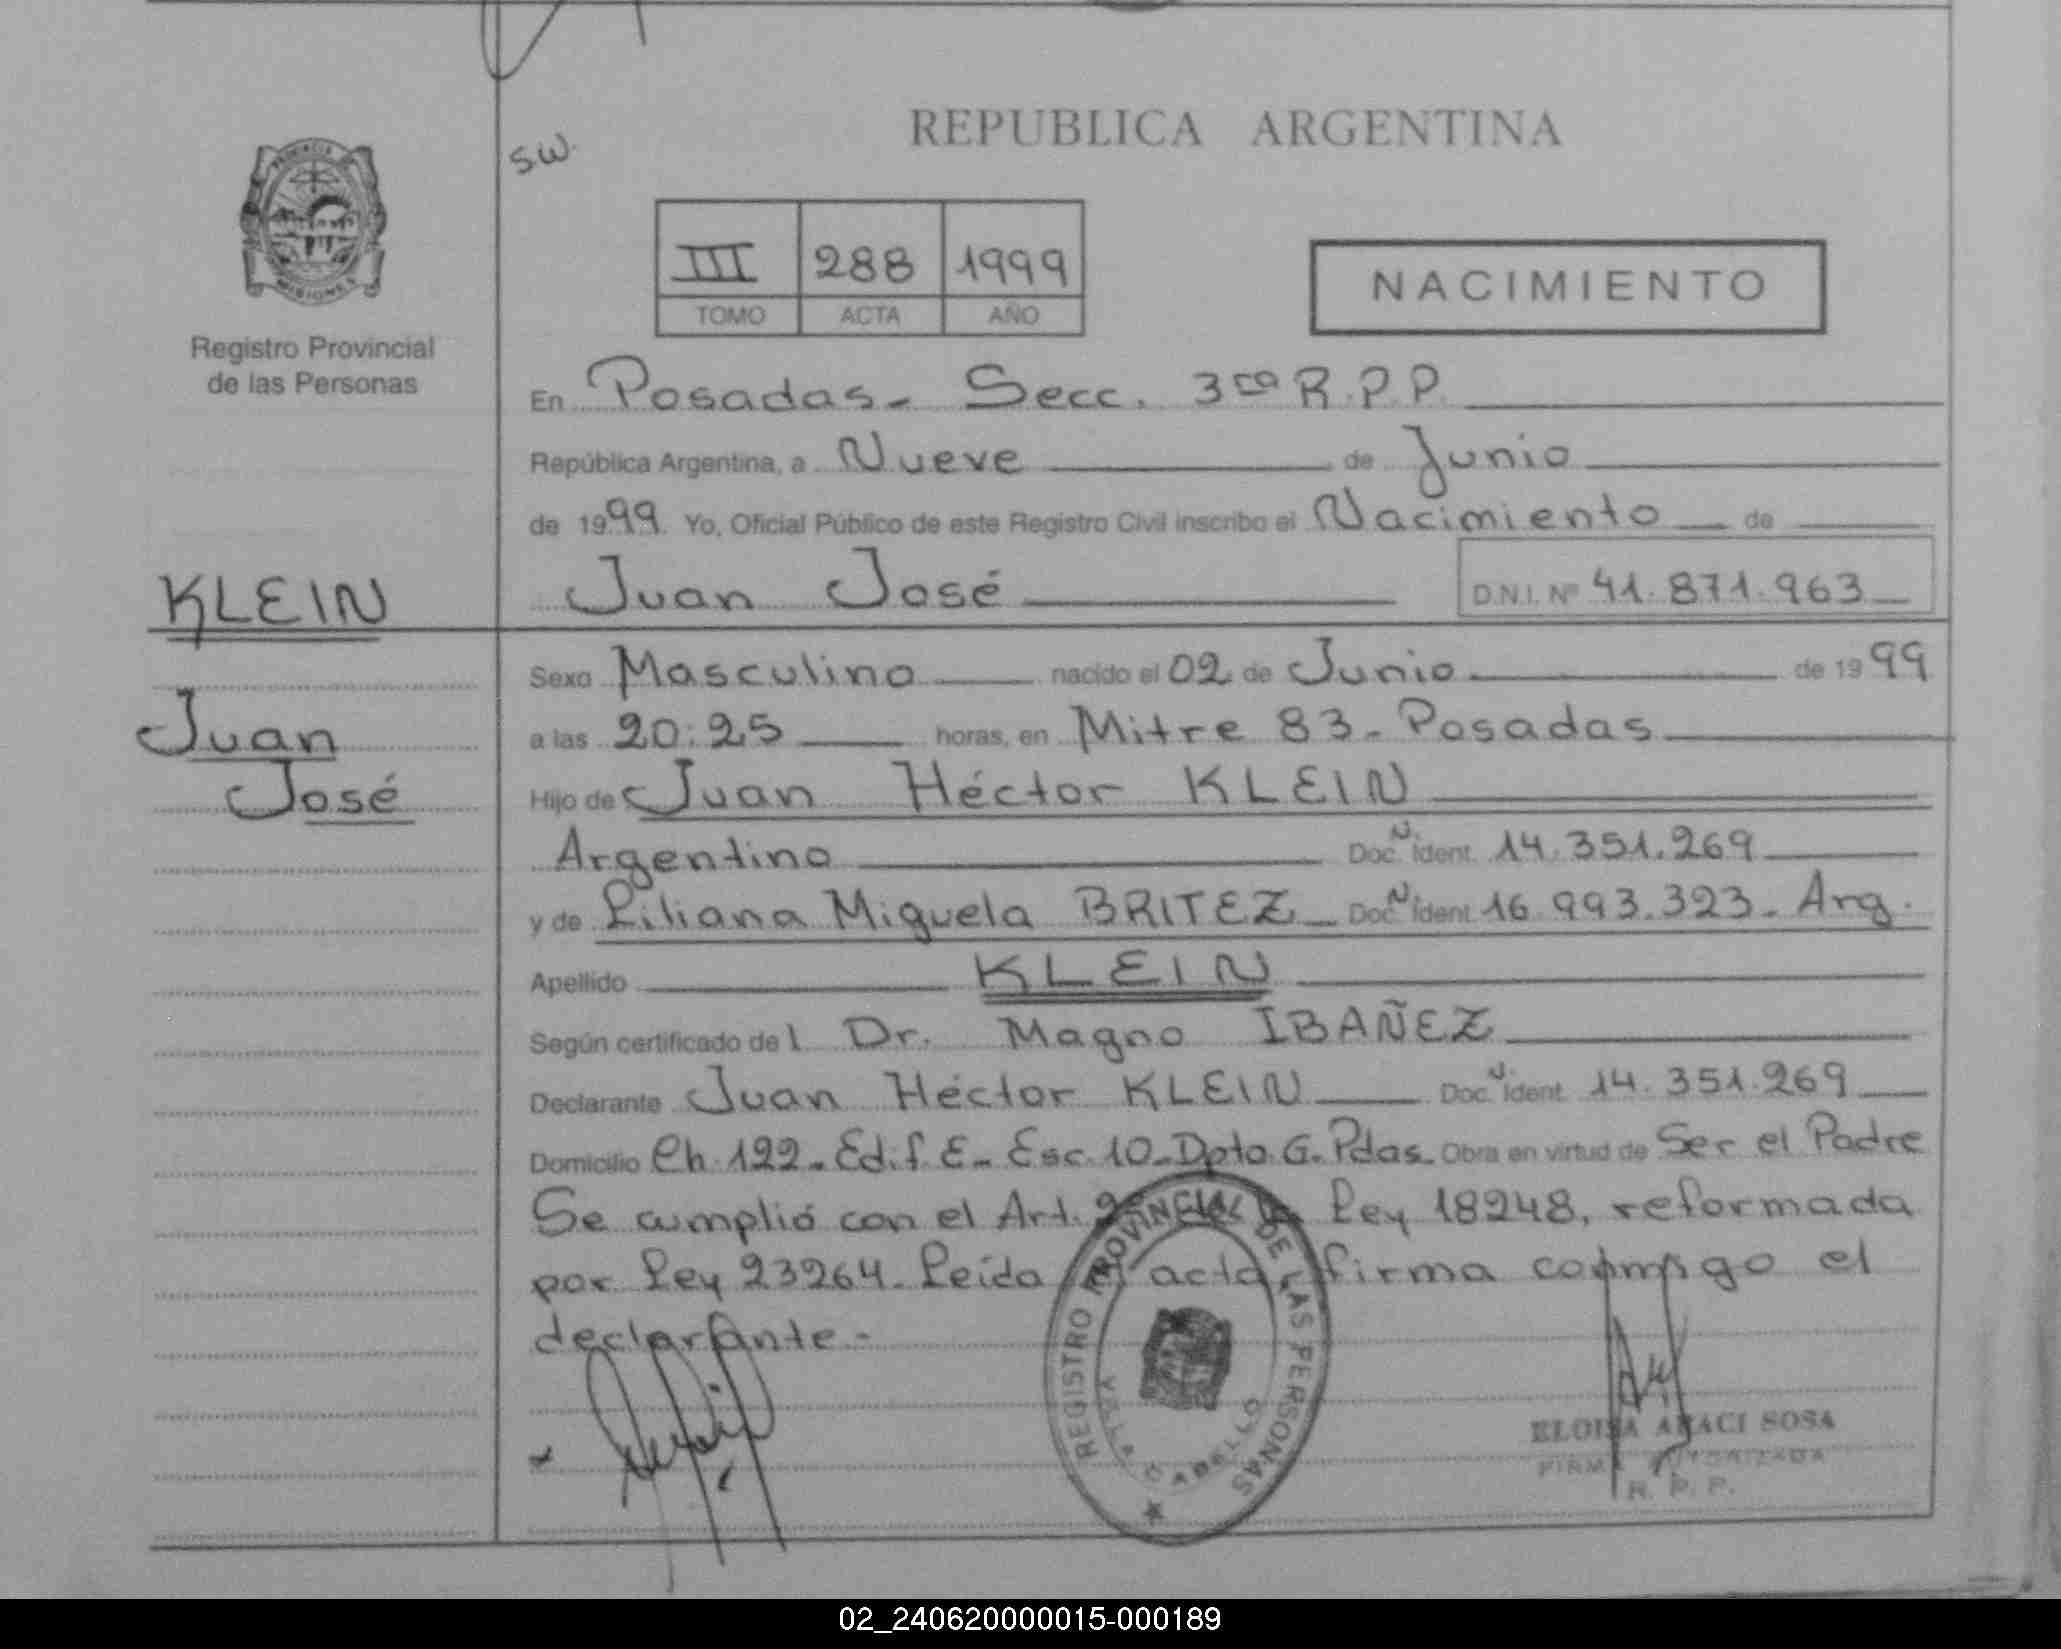 PROVINCIA
MISIONES
Registro Provincial
de las Personas
KLEIN
Juan
José
sw.
REPUBLICA ARGENTINA
III 288 1999
TOMO ACTA AÑO
NACIMIENTO
En Posadas - Secc. 3ra R.P.P.
República Argentina, a Nueve de Junio
de 1999. Yo, Oficial Público de este Registro Civil inscribo el Nacimiento de
Juan José D.N.I. Nº 41.871.963
Sexo Masculino nacido el 02 de Junio de 1999
a las 20:25 horas, en Mitre 83 - Posadas
Hijo de Juan Héctor KLEIN
Argentino Doc. N. Ident. 14.351.269
y de Liliana Miguela BRITEZ - Doc. N. Ident. 16.993.323 - Arg.
Apellido KLEIN
Según certificado del Dr. Magno IBAÑEZ
Declarante Juan Héctor KLEIN Doc. N. Ident. 14.351.269
Domicilio Ch. 122 - Edif. E - Esc. 10 - Dpto. G. Pdas. Obra en virtud de Ser el Padre
Se cumplió con el Art. Ley 18248, reformada
por Ley 23264. Leída acta firma conmigo el
declarante.-
REGISTRO PROVINCIAL DE LAS PERSONAS
VILLA CABELLO
ELOISA ARACI SOSA
FIRMA AUTORIZADA
R. P. P.
02_240620000015-000189